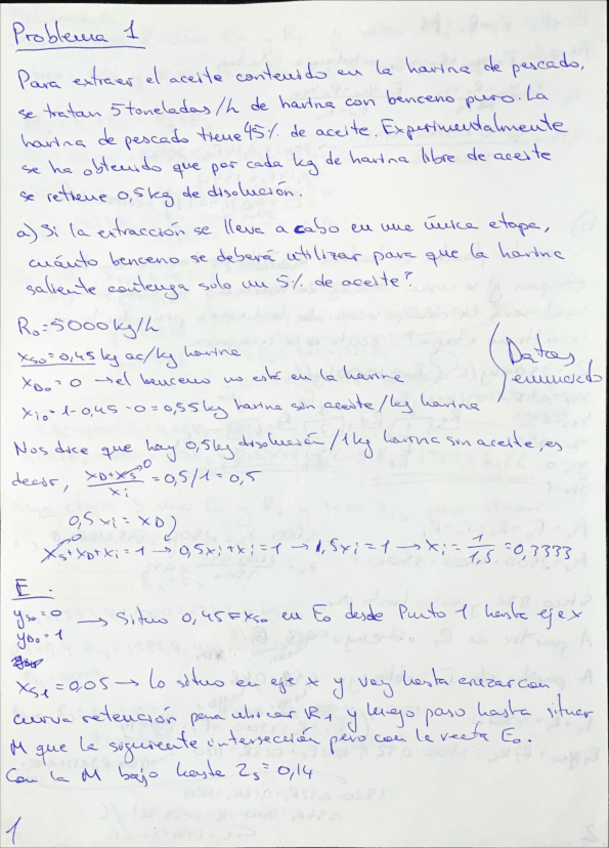 Problema 1
Para extraer el aceite contenido en la harina de pescado,
se tratan 5 toneladas/h de harina con benceno puro. La
harina de pescado tiene 45% de aceite. Experimentalmente
se ha obtenido que por cada kg de harina libre de aceite
se retiene 0,5 kg de disolución.
a) Si la extracción se lleva a cabo en una única etapa,
cuánto benceno se deberá utilizar para que la harina
saliente contenga solo un 5% de aceite?
R₀=5000 kg/h
xs₀=0,45 kg ac/kg harina
xD₀=0 → el benceno no está en la harina
xi₀=1-0,45-0=0,55 kg harina sin aceite/kg harina
(Datos enunciado
Nos dice que hay 0,5kg disolución/1kg harina sin aceite, es
decir, (xD+xS)/xi = 0,5/1 = 0,5
0,5xi = xD)
xs+xD+xi=1 → 0,5xi+xi=1 → 1,5xi=1 → xi=1/1,5=0,3333
E
ys₀=0
yD₀=1
→ Situo 0,45=xs₀ en E₀ desde Punto 1 hasta eje x
xs₁=0,05 → Lo situo en eje x y voy hasta cruzar con
curva retención para ubicar R₁ y luego paso hasta situar
M que la siguiente intersección pero con la recta E₀.
Con la M bajo hasta Zs=0,14
1